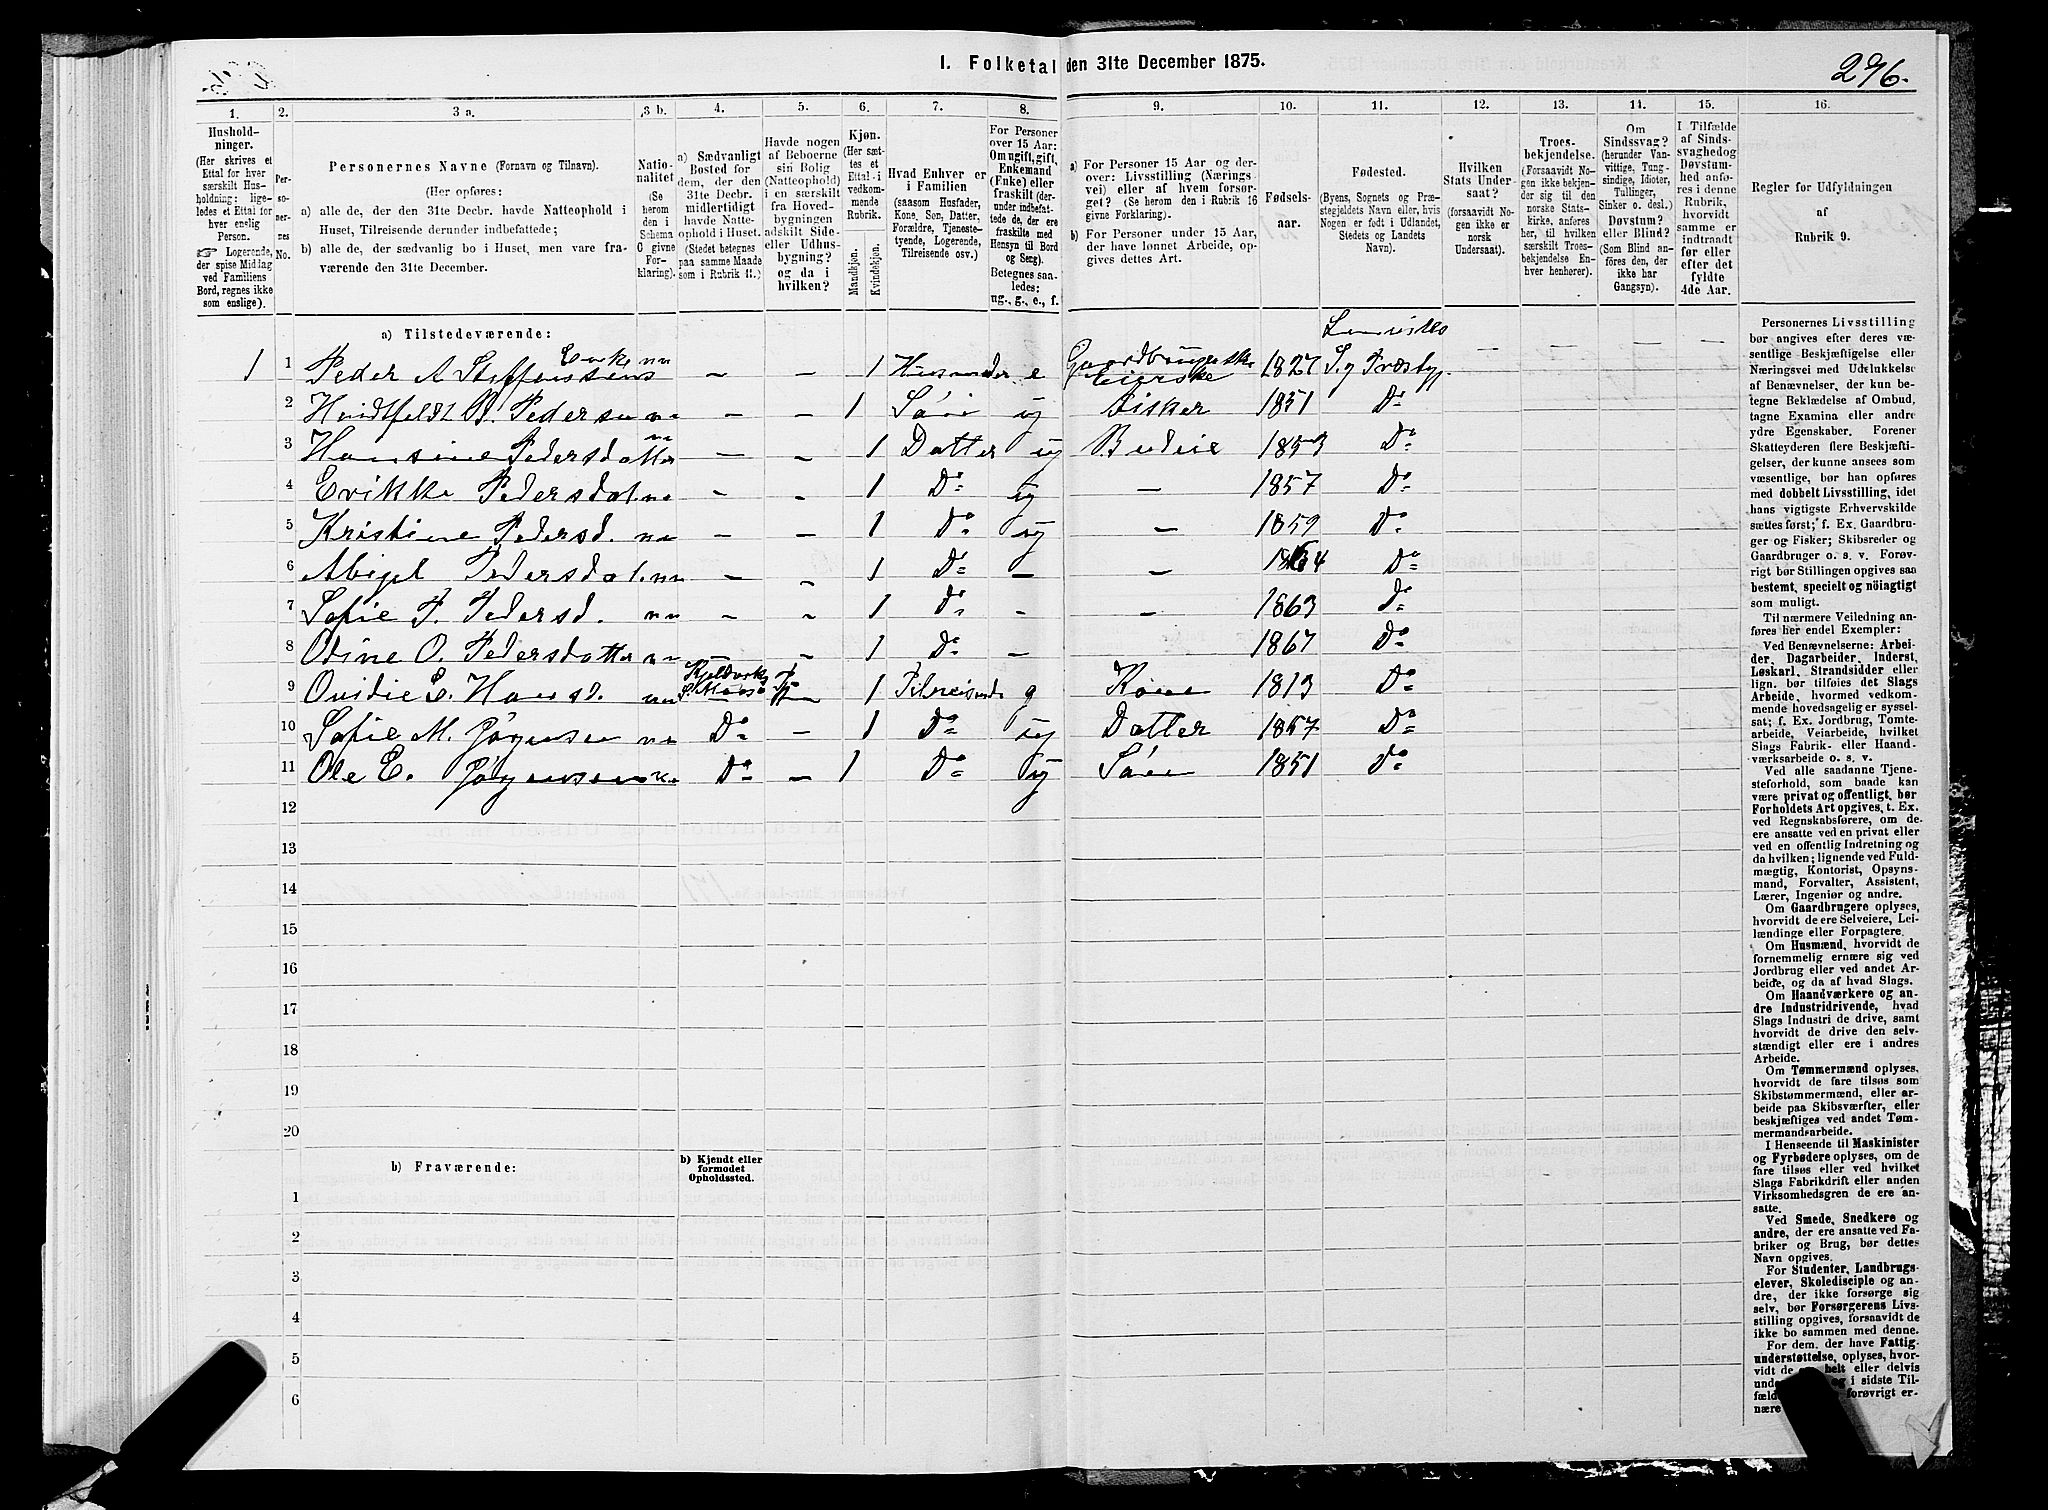 I. Folketal den 31te December 1875.
296.
1.
Hushold-
ninger.
(Her skrives et
Ettal for hver
særskilt Hus-
holdning; lige-
ledes et Ettal for
hver enslig
Person.
☞ Logerende,
der spise Middag
ved Familiens
Bord, regnes ikke
som enslige).
2.
Per-
so-
ner-
nes
No.
3 a.
Personernes Navne (Fornavn og Tilnavn).
(Her opføres:
a) alle de, der den 31te Decbr. havde Natteophold i
Huset, Tilreisende derunder indbefattede;
b) alle de, der sædvanlig bo i Huset, men vare fra-
værende den 31te December.
3 b.
Natio-
nalitet
(Se
herom
den i
Schema
C givne
For-
klaring).
4.
a) Sædvanligt
Bosted for
dem, der den
31te Decbr.
midlertidigt
havde Natte-
ophold i Huset.
(Stedet betegnes
paa samme Maade
som i Rubrik 11.)
5.
Havde nogen
af Beboerne
sin Bolig
(Natteophold)
i en særskilt
fra Hoved-
bygningen
adskilt Side-
eller Udhus-
bygning?
og da i
hvilken?
6.
Kjøn.
(Her sæt-
tes et
Ettal i
vedkom-
mende
Rubrik.
Mandkjøn.
Kvindekjøn.
7.
Hvad Enhver er
i Familien
(saasom Husfader,
Kone, Søn, Datter,
Forældre, Tjeneste-
tyende, Logerende,
Tilreisende osv.)
8.
For Personer
over 15 Aar:
Om ugift, gift,
Enkemand
(Enke) eller
fraskilt (der-
under indbefat-
tede de, der ere
fraskilte med
Hensyn til Bord
og Seng).
Betegnes saa-
ledes:
ug., g., e., f.
9.
a) For Personer 15 Aar og der-
over: Livsstilling (Nærings-
vei) eller af hvem forsør-
get? (Se herom den i Rubrik 16
givne Forklaring).
b) For Personer under 15 Aar,
der have lønnet Arbeide, op-
gives dettes Art.
10.
Fødsels-
aar.
11.
Fødested.
(Byens, Sognets og Præ-
stegjeldets Navn eller, hvis
Nogen er født i Udlandet,
Stedets og Landets
Navn).
12.
Hvilken
Stats Under-
saat?
(forsaavidt No-
gen ikke er
norsk
Undersaat).
13.
Troes-
bekjendelse.
(Forsaavidt No-
gen ikke bekjen-
der sig til den
norske Stats-
kirke, anføres
her, til hvilken
særskilt Troes-
bekjendelse En-
hver henhører).
11.
Om
Sindssvag?
(herunder Van-
vittige, Tung-
sindige, Idioter,
Tullinger,
Sinker o. desl.)
Døvstum?
eller Blind?
(Som Blind an-
føres den, der
ikke har
Gangsyn).
15.
I Tilfælde
af Sinds-
svaghed og
Døvstum-
hed anfø-
res i denne
Rubrik,
hvorvidt
samme er
indtraadt
før eller
efter det
fyldte
4de Aar.
16.
Regler for Udfyldningen
af
Rubrik 9.
a) Tilstedeværende:
1 1 Peder A Steffenssens Enke nn – – 1 Husmoder e Gaardbrugerske 1827 S. og Præstgj.
2 Hvidtfeldt B. Pedersen nn – – 1 Søn ug Fisker 1851 Do
3 Hansine Pedersdatter nn – – 1 Datter ug Budeie 1853 Do
4 Erikke Pedersdat. nn – – 1 Do ug – 1857 Do
5 Kristine Pedersd. nn – – 1 Do ug – 1859 Do
6 Abigel Pedersdat. nn – – 1 Do – – Do
7 Sofie P. Pedersd. nn – – 1 Do – – 1863 Do
8 Odine O. Pedersdatter nn – – 1 Do – 1867 Do
9 Ovidie E. Hansd. nn 1 Tilreisende g Kone 1813 Do
10 Sofie M. Jørgensen nn Do – 1 Do ug Datter 1857 Do
11 Ole E. Jørgensen nn Do – 1 Do ug Søn 1851 Do
12
13
14
15
16
17
18
19
20
b) Fraværende:
b) Kjendt eller
formodet
Opholdssted.
1
2
3
4
5
6
Personernes Livsstilling
bør angives efter deres væ-
sentlige Beskjæftigelse eller
Næringsvei med Udelukkelse
af Benævnelser, der kun be-
tegne Beklædelse af Ombud,
tagne Examina eller andre
ydre Egenskaber. Forener
Skatteyderen flere Beskjæfti-
gelser, der kunne ansees som
væsentlige, bør han opføres
med dobbelt Livsstilling, idet
hans vigtigste Erhvervskilde
sættes først; f. Ex. Gaardbru-
ger og Fisker; Skibsreder og
Gaardbruger o. s. v. Forøv-
rigt bør Stillingen opgives saa
bestemt, specielt og nöiagtigt
som muligt.
Til nærmere Veiledning an-
føres her endel Exempler:
Ved Benævnelserne: Arbei-
der, Dagarbeider, Inderst,
Løskarl, Strandsidder eller
lign. bør tilføies det Slags
Arbeide, hvormed vedkom-
mende hovedsagelig er syssel-
sat; f. Ex. Jordbrug, Tomte-
arbeide, Veiarbeide, hvilket
Slags Fabrik- eller Haand-
værksarbeide o. s. v.
Ved alle saadanne Tjene-
steforhold, som baade kan
være privat og offentligt, bør
Forholdets Art opgives, t. Ex.
ved Regnskabsførere, om de-
ere ansatte ved en privat eller
ved en offentlig Indretning og
da hvilken; lignende ved Fuld-
mægtig, Kontorist, Opsyns-
mand, Forvalter, Assistent,
Lærer, Ingeniør og andre.
Om Gaardbrugere oplyses,
hvorvidt de ere Selveiere, Lei-
lændinge eller Forpagtere.
Om Husmænd, hvorvidt de
fornemmelig ernære sig ved
Jordbrug eller ved andet Ar-
beide, og da af hvad Slags.
Om Haandværkere og an-
dre Industridrivende, hvad
Slags Industri de drive, samt
hvorvidt de drive den selv-
stændigt eller ere i andres
Arbeide.
Om Tømmermænd oplyses,
hvorvidt de fare tilsøs som
Skibstømmermænd, eller ar-
beide paa Skibsværfter, eller
beskjæftiges ved andet Tøm-
mermandsarbeide.
I Henseende til Maskinister
og Fyrbødere oplyses, om de
fare tilsøs eller ved hvilket
Slags Fabrikdrift eller anden
Virksomhedsgren de ere an-
satte.
Ved Smede, Snedkere og
andre, der ere ansatte ved Fa-
briker og Brug, bør dettes
Navn opgives.
For Studenter, Landbrugs-
elever, Skoledisciple og an-
dre, der ikke forsørge sig
selv, bør Forsørgerens Livs-
stilling opgives, forsaavidt de
ikke bo sammen med denne.
For dem, der have Fattig-
understøttelse, oplyses, hvor-
vidt de helt eller delvis
og i sidste Til-
forøvrigt er-
nære